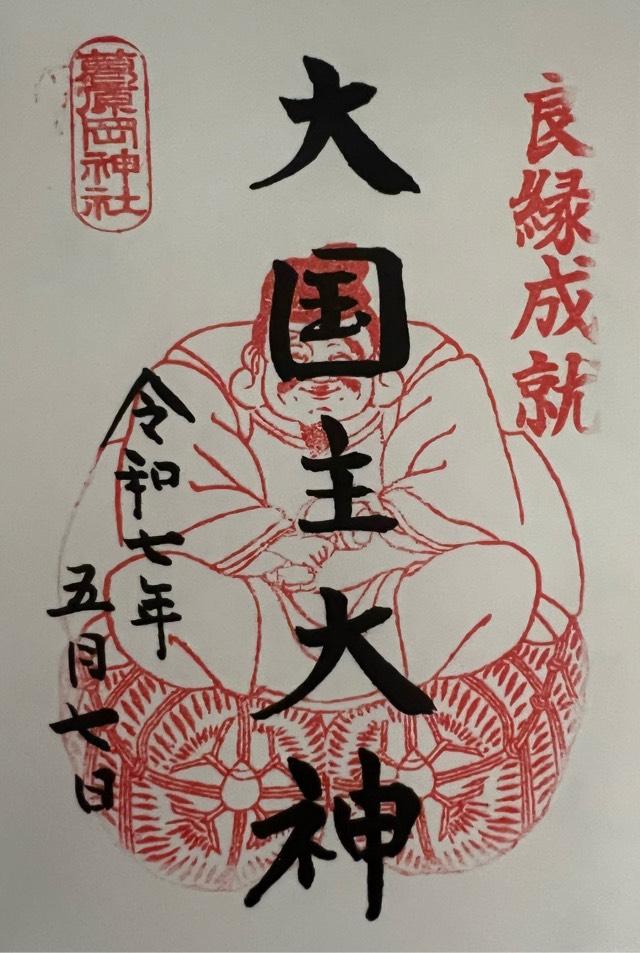 良縁成就
大国主大神
葛原岡神社
令和七年
五月七日